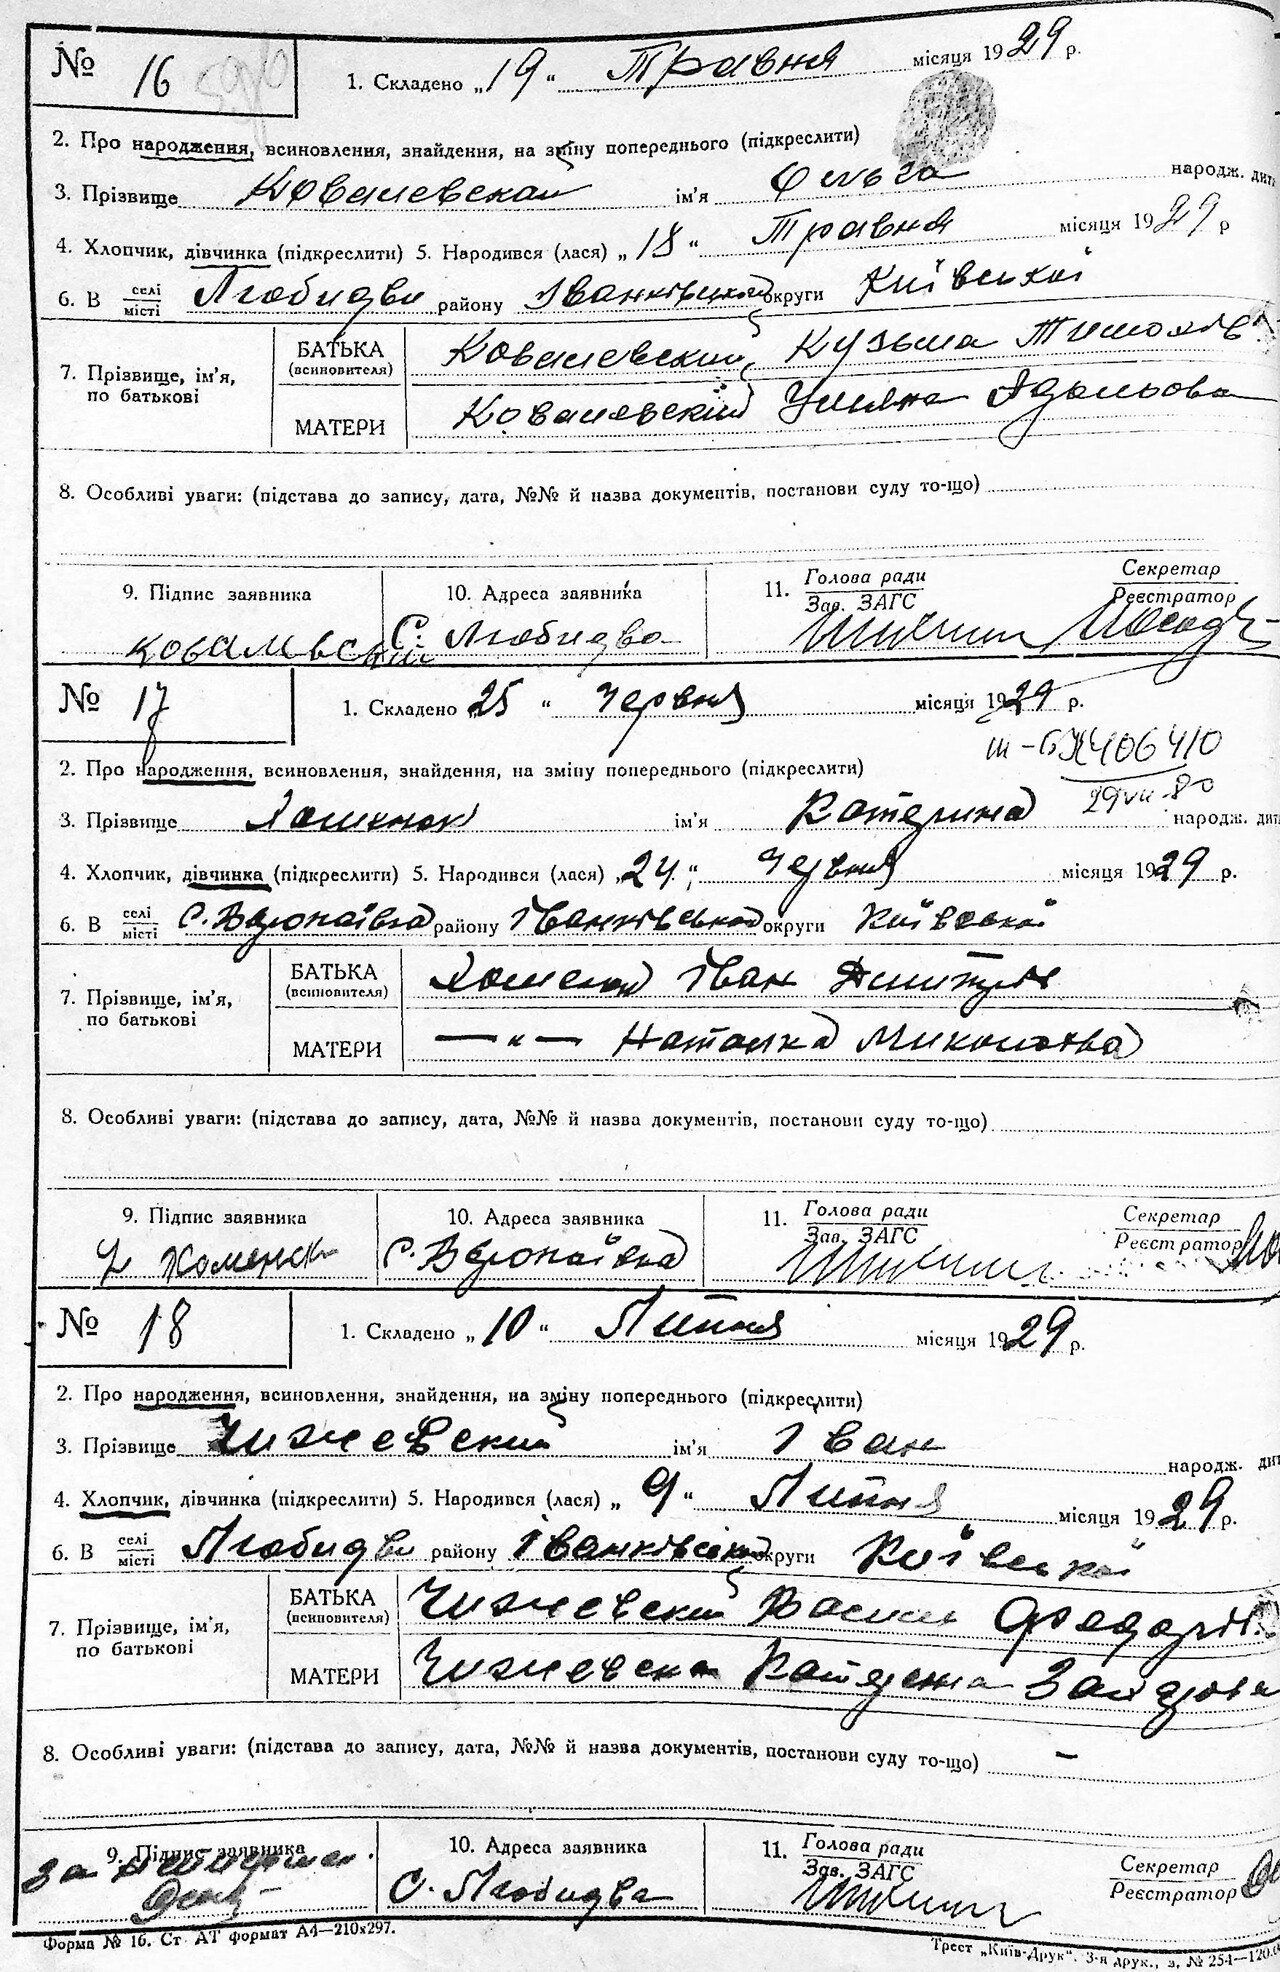 № 16
1. Складено „19" Травня місяця 1929 р.
2. Про народження, всиновлення, знайдення, на зміну попереднього (підкреслити)
3. Прізвище Ковалевская ім'я Ольга народж. дит
4. Хлопчик, дівчинка (підкреслити) 5. Народився (лася) „18" Травня місяця 1929 р
6. В селі місті Любидва району Іванківської округи Київської
7. Прізвище, ім'я, по батькові
БАТЬКА (всиновителя) Ковалевский, Кузьма
МАТЕРИ Ковалевский Уляна Адольова
8. Особливі уваги: (підстава до запису, дата, №№ й назва документів, постанови суду то-що)
9. Підпис заявника 10. Адреса заявника 11. Голова ради Зав. ЗАГС Секретар Реєстратор
Ковалевский С. Любидва
№ 17
1. Складено „25" Червня місяця 1929 р.
2. Про народження, всиновлення, знайдення, на зміну попереднього (підкреслити)
406410
29 VII 80
3. Прізвище Хоменок ім'я Катерина народж. дит
4. Хлопчик, дівчинка (підкреслити) 5. Народився (лася) „24" Червня місяця 1929 р.
6. В селі місті С. Воропаївка району Іванківської округи Київської
7. Прізвище, ім'я, по батькові
БАТЬКА (всиновителя) Хоменок Іван Дмитрів
МАТЕРИ — „ — Наталка Миколаєва
8. Особливі уваги: (підстава до запису, дата, №№ й назва документів, постанови суду то-що)
9. Підпис заявника 10. Адреса заявника 11. Голова ради Зав. ЗАГС Секретар Реєстратор
Хоменок С. Воропаївка
№ 18
1. Складено „10" Липня місяця 1929 р.
2. Про народження, всиновлення, знайдення, на зміну попереднього (підкреслити)
3. Прізвище Чижевский ім'я Іван народж. дит
4. Хлопчик, дівчинка (підкреслити) 5. Народився (лася) „9" Липня місяця 1929 р.
6. В селі місті Любидва району Іванківської округи Київської
7. Прізвище, ім'я, по батькові
БАТЬКА (всиновителя) Чижевский Васил Федорів
МАТЕРИ Чижевска Катерина
8. Особливі уваги: (підстава до запису, дата, №№ й назва документів, постанови суду то-що) —
9. Підпис заявника 10. Адреса заявника 11. Голова ради Зав. ЗАГС Секретар Реєстратор
за С. Любидва
Форма № 16. Ст. АТ формат А4—210x297.
Трест „Київ-Друк". 3-я друк., з. № 254—120.0